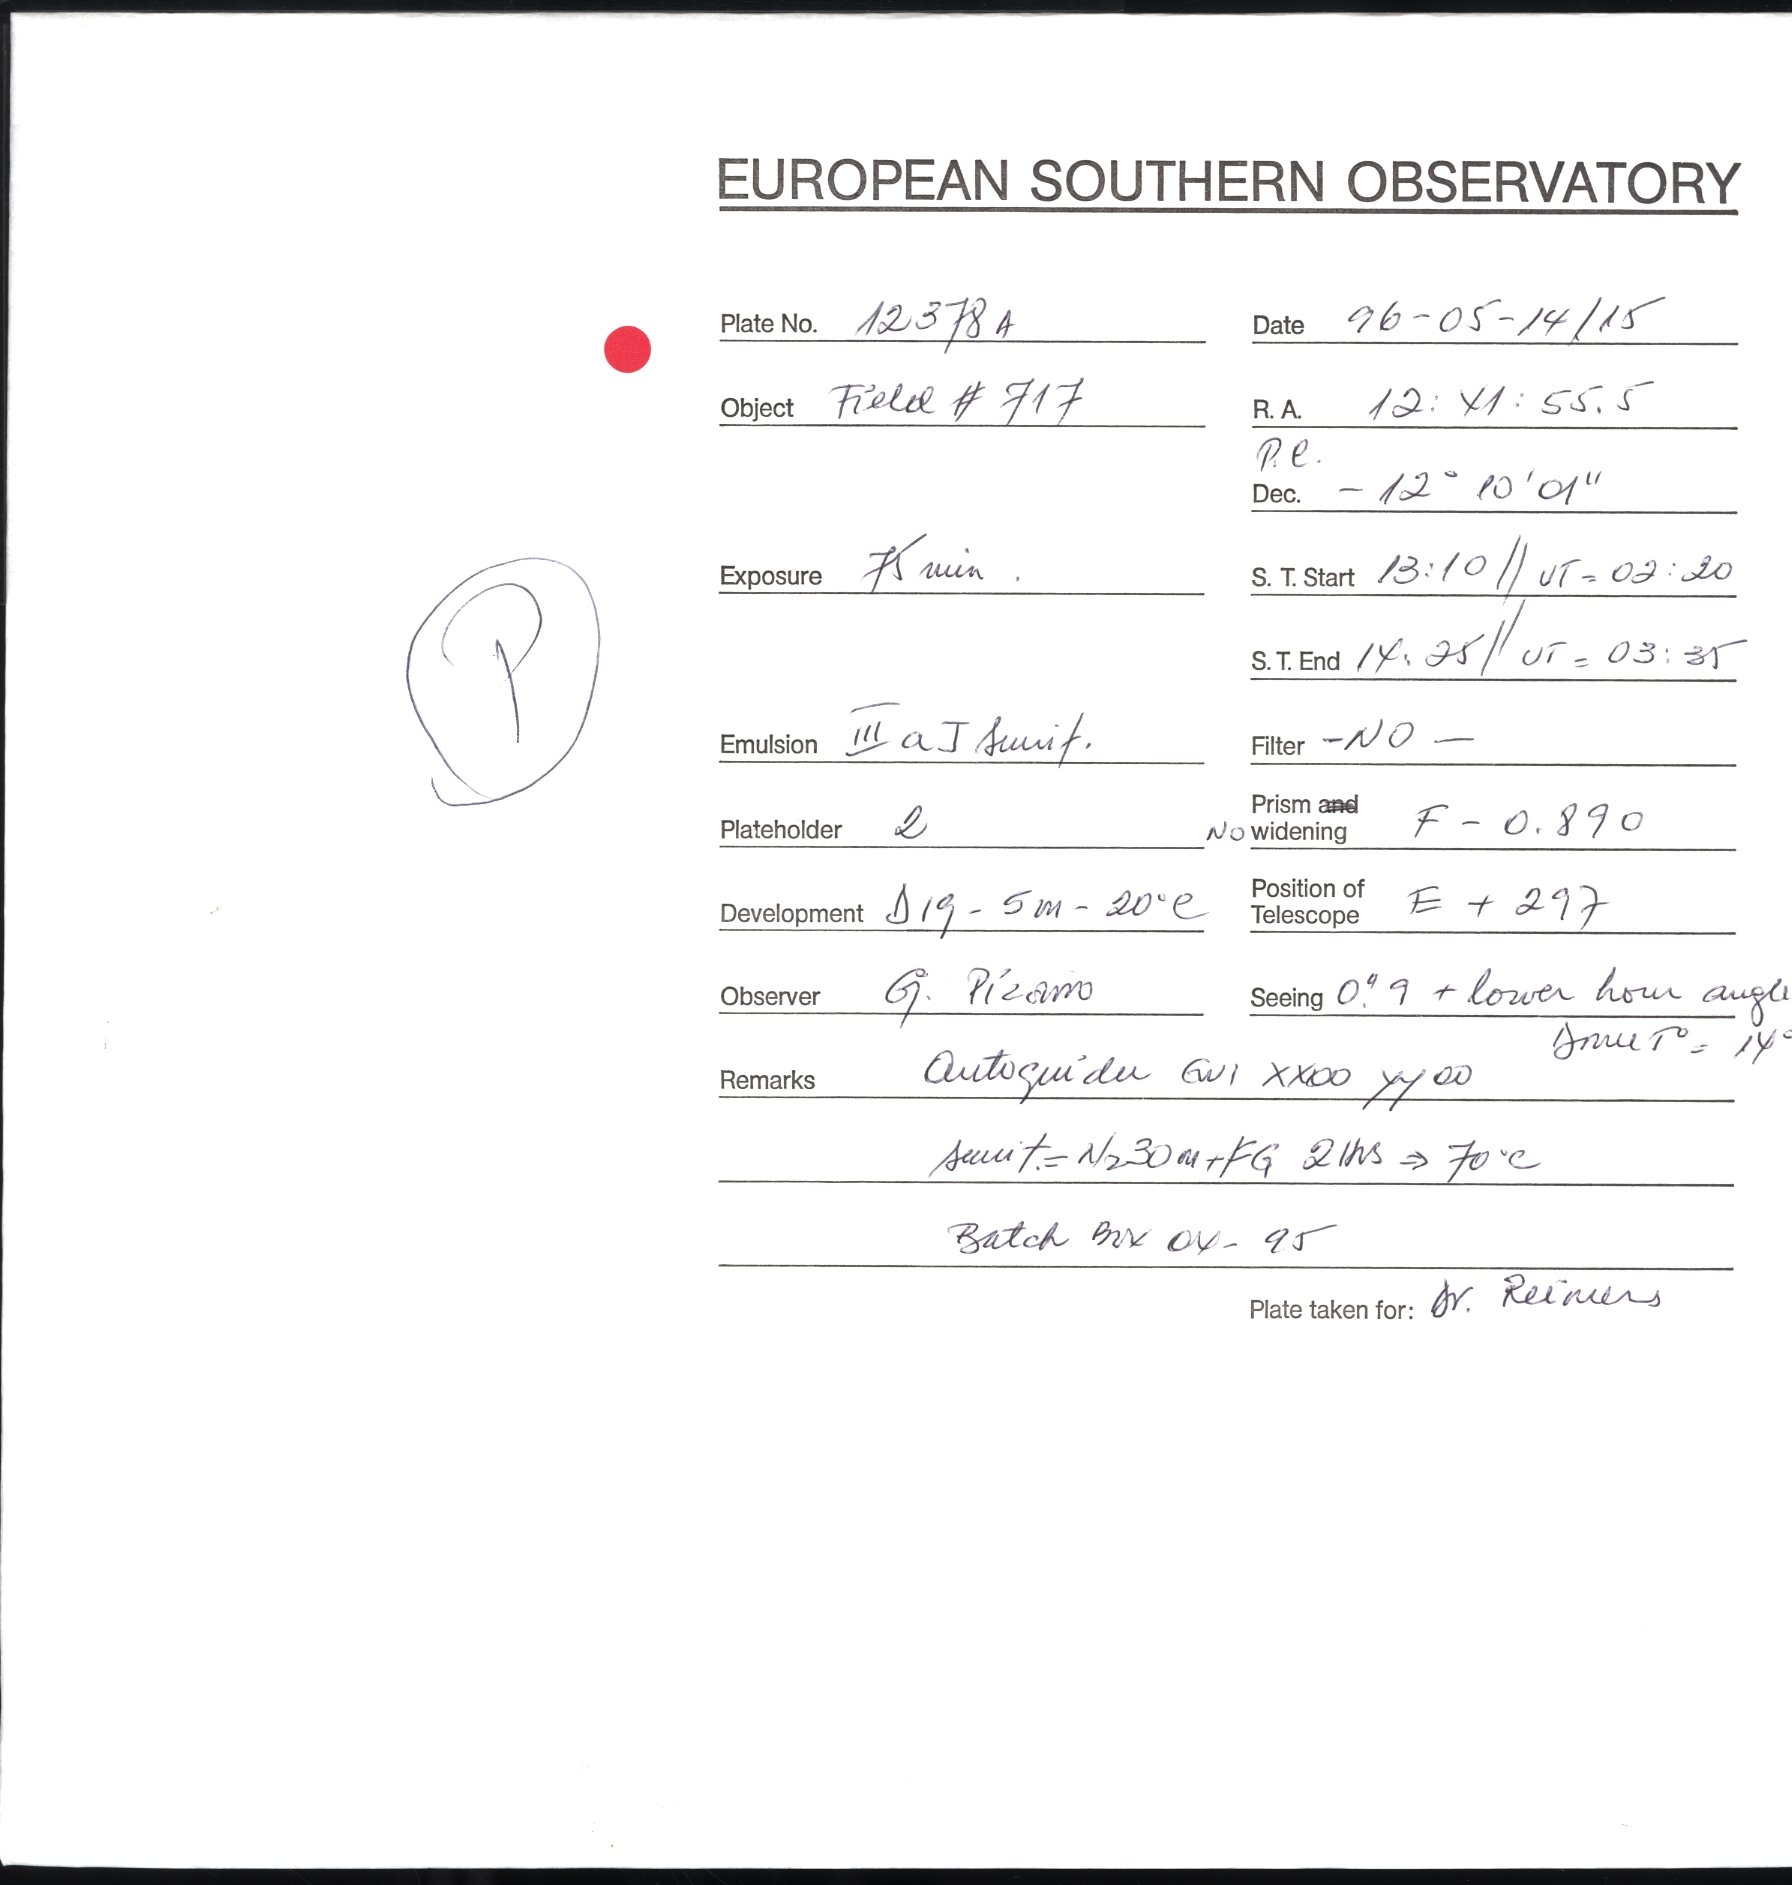 EUROPEAN SOUTHERN OBSERVATORY
Plate No. 12378A Date 96-05-14/15
Object Field # 717 R. A. 12: 41: 55.5
P.C.
Dec. - 12° 10' 01"
Exposure 75 min. S. T. Start 13:10 // UT = 02:20
S. T. End 14:25 // UT = 03:35
P
Emulsion III a J sensit. Filter - NO -
Plateholder 2 NO Prism and widening F - 0.890
Development D19 - 5m - 20°C Position of Telescope E + 297
Observer G. Pizarro Seeing 0."9 + lower hour angle
Dome T° = 14°
Remarks Autoguider GW1 XX00 YY00
sensit. = N2 30m + FG 2 Hrs ⇒ 70°C
Batch Box 04-95
Plate taken for: Dr. Reimers